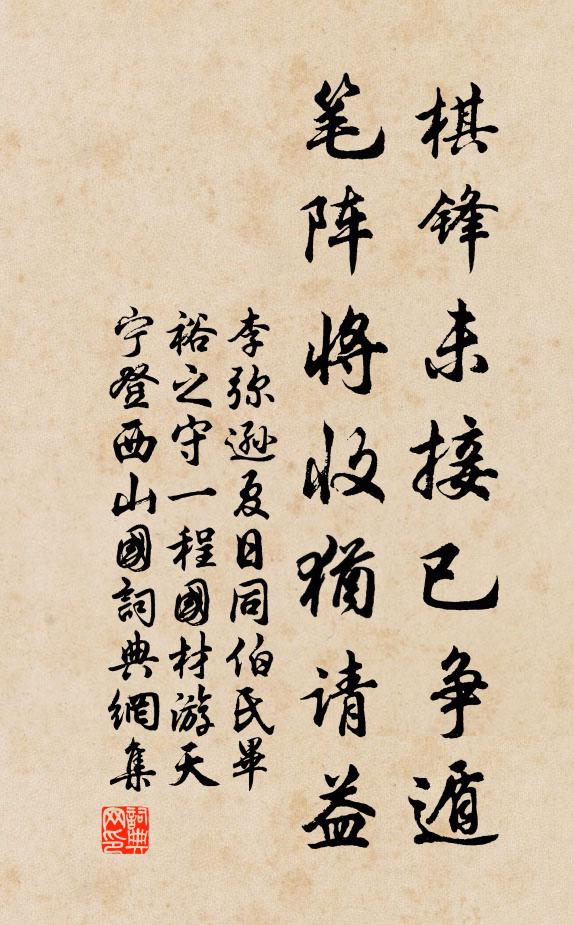 棋锋未接已争遁
笔阵将收猶请益
李弥遜夏日同伯氏畢
裕之守一程國材游天
宁登西山國詞典網集
詞典网印